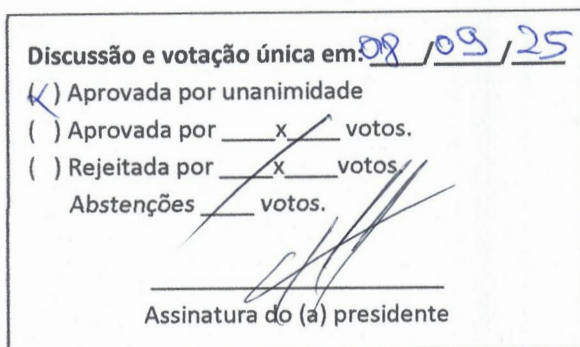 Discussão e votação única em: 08 / 09 / 25
(X) Aprovada por unanimidade
( ) Aprovada por ____x____ votos.
( ) Rejeitada por ____x____votos.
Abstenções ____ votos.
Assinatura do (a) presidente